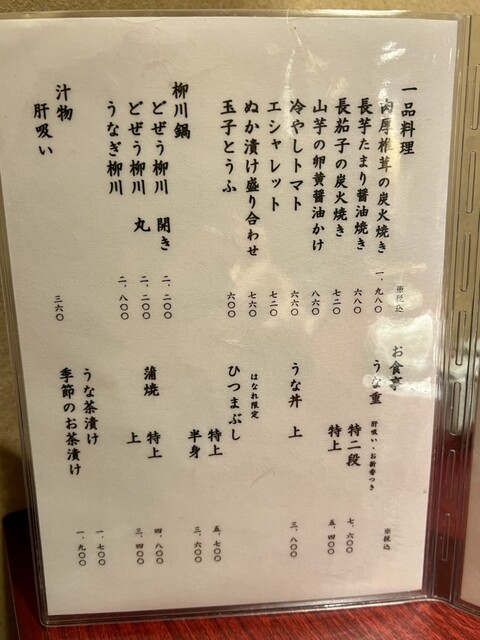 一品料理 ※税込
肉厚椎茸の炭火焼き 一、九八〇
長芋たまり醤油焼き 六八〇
長茄子の炭火焼き 七二〇
山芋の卵黄醤油かけ 八六〇
冷やしトマト 六六〇
エシャレット 七二〇
ぬか漬け盛り合わせ 七六〇
玉子とうふ 六〇〇
柳川鍋
どぜう柳川 開き 二、二〇〇
どぜう柳川 丸 二、二〇〇
うなぎ柳川 二、八〇〇
汁物
肝吸い 三六〇
お食事 ※税込
うな重 肝吸い・お新香つき
特二段 七、六〇〇
特上 五、四〇〇
うな丼 上 三、八〇〇
はなれ限定
ひつまぶし 特上 五、七〇〇
半身 三、六〇〇
蒲焼 特上 四、八〇〇
上 三、四〇〇
うな茶漬け 一、七〇〇
季節のお茶漬け 一、九〇〇